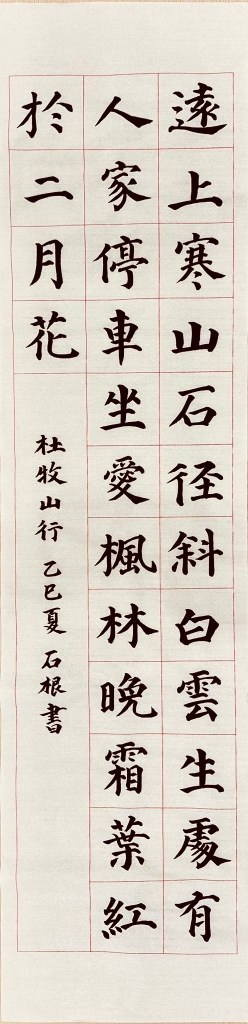 遠上寒山石径斜白雲生處有
人家停車坐愛楓林晚霜葉紅
於二月花
杜牧山行 乙巳夏 石根書